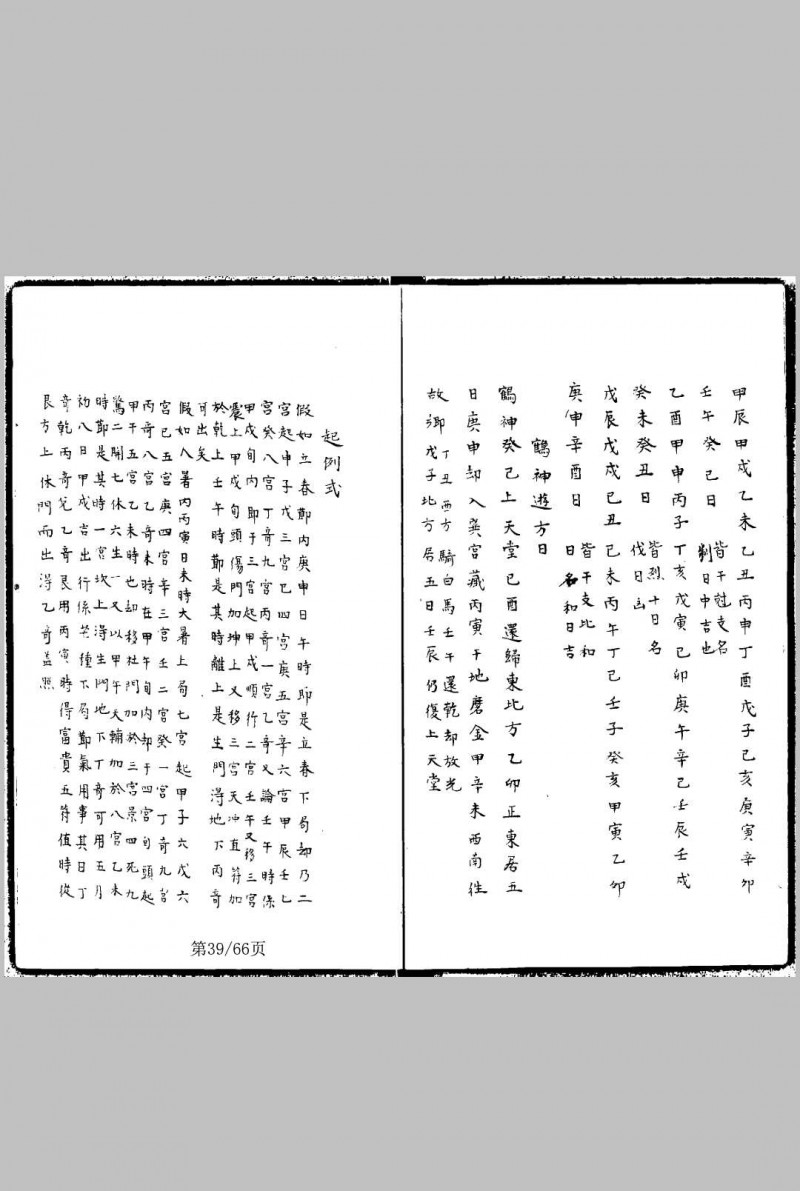 甲辰甲戌乙未乙丑丙申丁酉戊子己亥庚寅辛卯
壬午癸己日
皆干尅支名
制日中吉也
乙酉甲申丙子丁亥戊寅己卯庚午辛己壬辰壬戌
癸未癸丑日
皆烈十日名
伐日凶
戊辰戊戌己丑己未丙午丁己壬子癸亥甲寅乙卯
庚申辛酉日
皆干支比和
日名和日吉
鶴神遊方日
鶴神癸己上天堂己酉還歸東北方乙卯正東居五
日庚申却入巽宮藏丙寅于地磨金甲辛未西南徃
故鄉
丁丑西方騎白馬壬午還乾却放光
戊子北方居五日壬辰仍復上天堂
起例式
假如立春節內庚申日午時即是立春下局却乃二
宮起甲子戊三宮己四宮庚五宮辛六宮甲辰壬七
宮癸八宮丁奇九宮丙奇一宮乙奇又論壬午時係
甲戌旬內即于三宮起甲戌順行二宮壬午又移三宮
震上甲戌旬頭傷門加坤上又移三宮天冲直符加
於乾上壬午時節是其時離上是生門得地下丙奇
可出矣
假如入暑內丙寅日未時大暑上局七宮起甲子六戊六
宮己五宮庚四宮辛三宮壬二宮癸一宮丁奇九宮
丙奇八宮乙奇未時在甲午旬內却于四宮旬頭起
甲午五宮乙未時也却移杜門加於三宮景四死九
驚二開七休六生一又以甲午天輔加於八宮乙未
時節是其時一宮坎上得生門地下丁奇可用五月
初八日甲戌吉出行係芒種下局節氣用事其日丁
奇乾丙奇兌乙奇艮用丙寅時得富貴五符值時從
艮方上休門而出得乙奇盖照
第39/66页